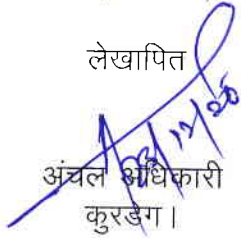 लेखापित
अंचल अधिकारी
कुरडेग।